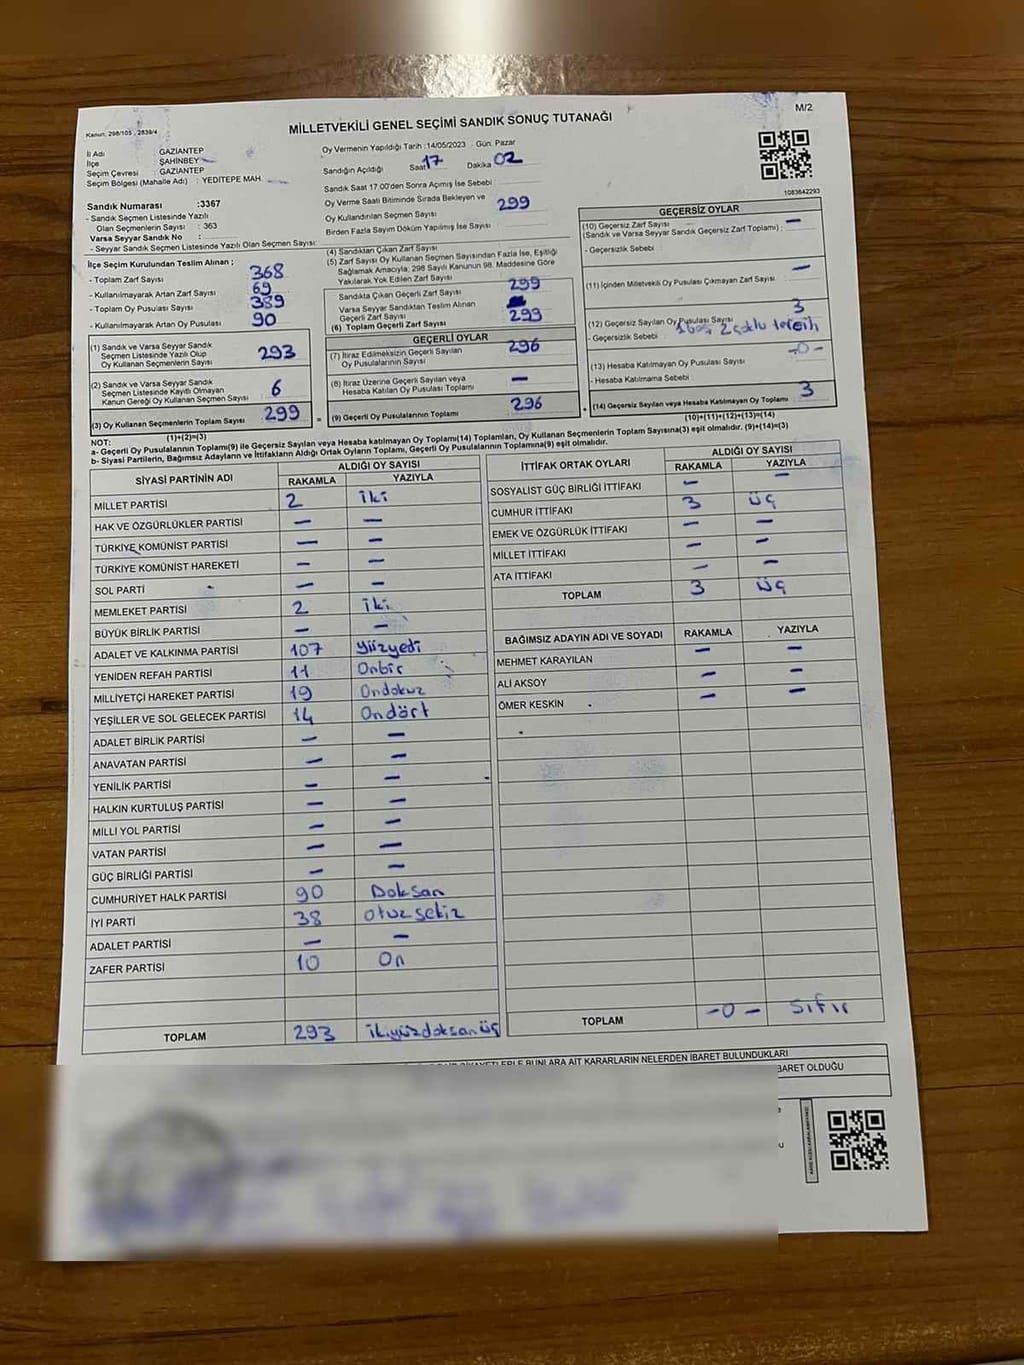 M/2
Kanun. 298/105 , 2839/4
MİLLETVEKİLİ GENEL SEÇİMİ SANDIK SONUÇ TUTANAĞI
İl Adı GAZİANTEP
İlçe ŞAHİNBEY
Seçim Çevresi GAZİANTEP
Seçim Bölgesi (Mahalle Adı) : YEDİTEPE MAH.
Oy Vermenin Yapıldığı Tarih :14/05/2023 - Gün. Pazar
Sandığın Açıldığı Saat 17 Dakika 02
Sandık Saat 17.00'den Sonra Açımış İse Sebebi :
Oy Verme Saati Bitiminde Sırada Bekleyen ve
Oy Kullandırılan Seçmen Sayısı 299
Birden Fazla Sayım Döküm Yapılmış İse Sayısı :
1083642293
Sandık Numarası :3367
- Sandık Seçmen Listesinde Yazılı
Olan Seçmenlerin Sayısı : 363
Varsa Seyyar Sandık No :
- Seyyar Sandık Seçmen Listesinde Yazılı Olan Seçmen Sayısı:
İlçe Seçim Kurulundan Teslim Alınan ;
- Toplam Zarf Sayısı 368
- Kullanılmayarak Artan Zarf Sayısı 69
- Toplam Oy Pusulası Sayısı 389
- Kullanılmayarak Artan Oy Pusulası 90
(1) Sandık ve Varsa Seyyar Sandık
Seçmen Listesinde Yazılı Olup
Oy Kullanan Seçmenlerin Sayısı 293
(2) Sandık ve Varsa Seyyar Sandık
Seçmen Listesinde Kayıtlı Olmayan
Kanun Gereği Oy Kullanan Seçmen Sayısı 6
(3) Oy Kullanan Seçmenlerin Toplam Sayısı 299
(1)+(2)=(3)
(4) Sandıktan Çıkan Zarf Sayısı
(5) Zarf Sayısı Oy Kullanan Seçmen Sayısından Fazla İse, Eşitliği
Sağlamak Amacıyla, 298 Sayılı Kanunun 98. Maddesine Göre
Yakılarak Yok Edilen Zarf Sayısı
Sandıkta Çıkan Geçerli Zarf Sayısı 299
Varsa Seyyar Sandıktan Teslim Alınan
Geçerli Zarf Sayısı
(6) Toplam Geçerli Zarf Sayısı 299
GEÇERLİ OYLAR
(7) İtiraz Edilmeksizin Geçerli Sayılan
Oy Pusulalarının Sayısı 296
(8) İtiraz Üzerine Geçerli Sayılan veya
Hesaba Katılan Oy Pusulası Toplamı —
= (9) Geçerli Oy Pusulalarının Toplamı 296
GEÇERSİZ OYLAR
(10) Geçersiz Zarf Sayısı
(Sandık ve Varsa Seyyar Sandık Geçersiz Zarf Toplamı) : —
- Geçersizlik Sebebi :
(11) İçinden Milletvekili Oy Pusulası Çıkmayan Zarf Sayısı —
(12) Geçersiz Sayılan Oy Pusulası Sayısı 3
- Geçersizlik Sebebi : 1 boş 2 çoklu tercih
(13) Hesaba Katılmayan Oy Pusulası Sayısı -0-
- Hesaba Katılmama Sebebi :
+ (14) Geçersiz Sayılan veya Hesaba Katılmayan Oy Toplamı 3
(10)+(11)+(12)+(13)=(14)
NOT:
a- Geçerli Oy Pusulalarının Toplamı(9) ile Geçersiz Sayılan veya Hesaba katılmayan Oy Toplamı(14) Toplamları, Oy Kullanan Seçmenlerin Toplam Sayısına(3) eşit olmalıdır. (9)+(14)=(3)
b- Siyasi Partilerin, Bağımsız Adayların ve İttifakların Aldığı Ortak Oyların Toplamı, Geçerli Oy Pusulalarının Toplamına(9) eşit olmalıdır.
SİYASİ PARTİNİN ADI ALDIĞI OY SAYISI
RAKAMLA YAZIYLA
MİLLET PARTİSİ 2 iki
HAK VE ÖZGÜRLÜKLER PARTİSİ — —
TÜRKİYE KOMÜNİST PARTİSİ — —
TÜRKİYE KOMÜNİST HAREKETİ — —
SOL PARTİ — —
MEMLEKET PARTİSİ 2 iki
BÜYÜK BİRLİK PARTİSİ — —
ADALET VE KALKINMA PARTİSİ 107 yüzyedi
YENİDEN REFAH PARTİSİ 11 Onbir
MİLLİYETÇİ HAREKET PARTİSİ 19 Ondokuz
YEŞİLLER VE SOL GELECEK PARTİSİ 14 Ondört
ADALET BİRLİK PARTİSİ — —
ANAVATAN PARTİSİ — —
YENİLİK PARTİSİ — —
HALKIN KURTULUŞ PARTİSİ — —
MİLLİ YOL PARTİSİ — —
VATAN PARTİSİ — —
GÜÇ BİRLİĞİ PARTİSİ — —
CUMHURİYET HALK PARTİSİ 90 Doksan
İYİ PARTİ 38 otuz sekiz
ADALET PARTİSİ — —
ZAFER PARTİSİ 10 On
TOPLAM 293 ikiyüzdoksan üç
İTTİFAK ORTAK OYLARI ALDIĞI OY SAYISI
RAKAMLA YAZIYLA
SOSYALİST GÜÇ BİRLİĞİ İTTİFAKI — —
CUMHUR İTTİFAKI 3 üç
EMEK VE ÖZGÜRLÜK İTTİFAKI — —
MİLLET İTTİFAKI — —
ATA İTTİFAKI — —
TOPLAM 3 üç
BAĞIMSIZ ADAYIN ADI VE SOYADI RAKAMLA YAZIYLA
MEHMET KARAYILAN — —
ALİ AKSOY — —
ÖMER KESKİN — —
TOPLAM -0- Sıfır
BUNLARA AİT KARARLARIN NELERDEN İBARET BULUNDUKLARI
BARET OLDUĞU